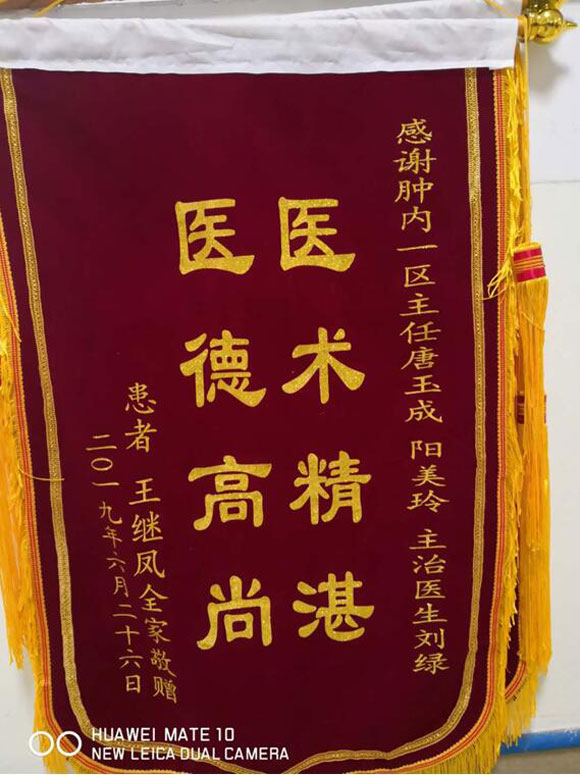 感谢肿内一区主任唐玉成 阳美玲 主治医生刘绿
医术精湛
医德高尚
患者 王继凤全家敬赠
二〇一九年六月二十六日
HUAWEI MATE 10
NEW LEICA DUAL CAMERA